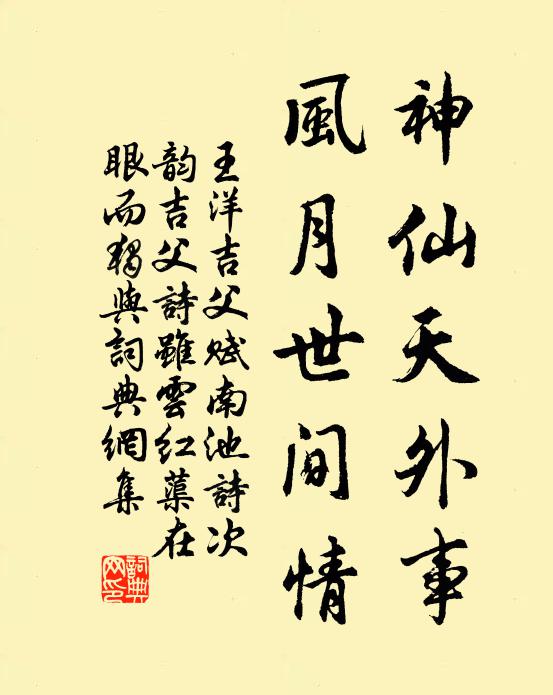 神仙天外事
風月世間情
王洋吉父賦南池詩次
韵吉父詩雖雲红蕖在
眼而獨與詞典網集
詞典
网印